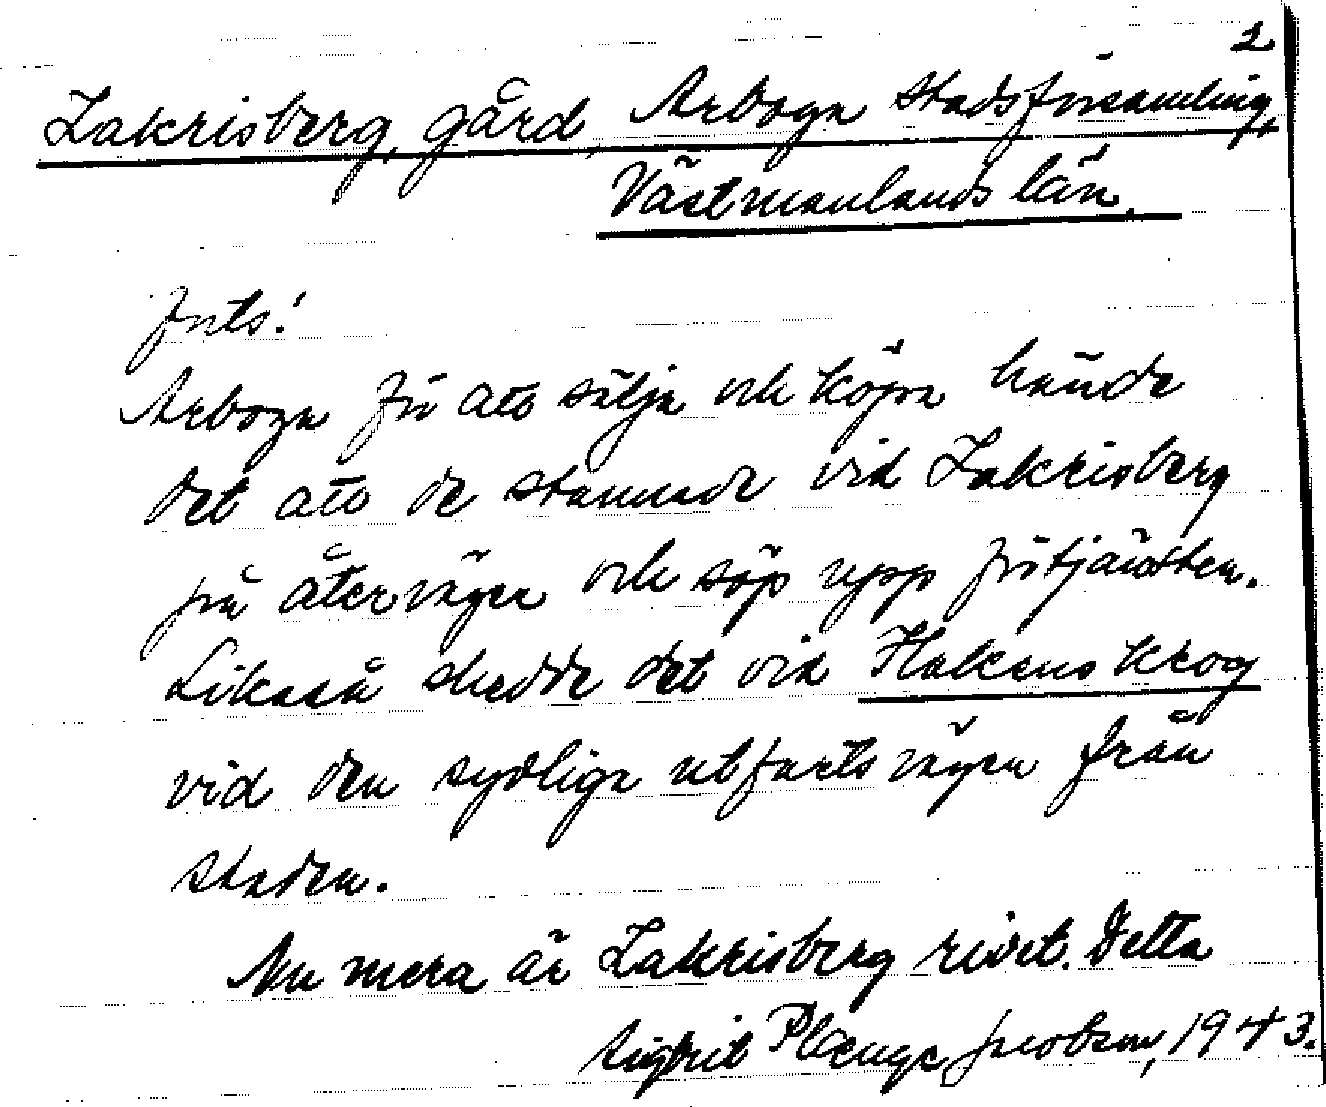 2
Lakrisberg, gård, Arboga stadsförsamling,
Västmanlands län.
forts.
Arboga för att sälja och köpa hände
det att de stannade vid Lakrisberg
på återvägen och söp upp förtjänsten.
Likaså skedde det vid Hakens krog
vid den sydliga utfartsvägen från
staden.
Nu mera är Lakrisberg rivet. Detta
Sigbrit Plænge Jacobson, 1943.